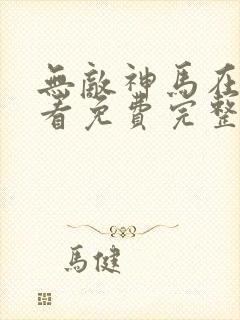 無敵神馬在
看免費完整
馬健